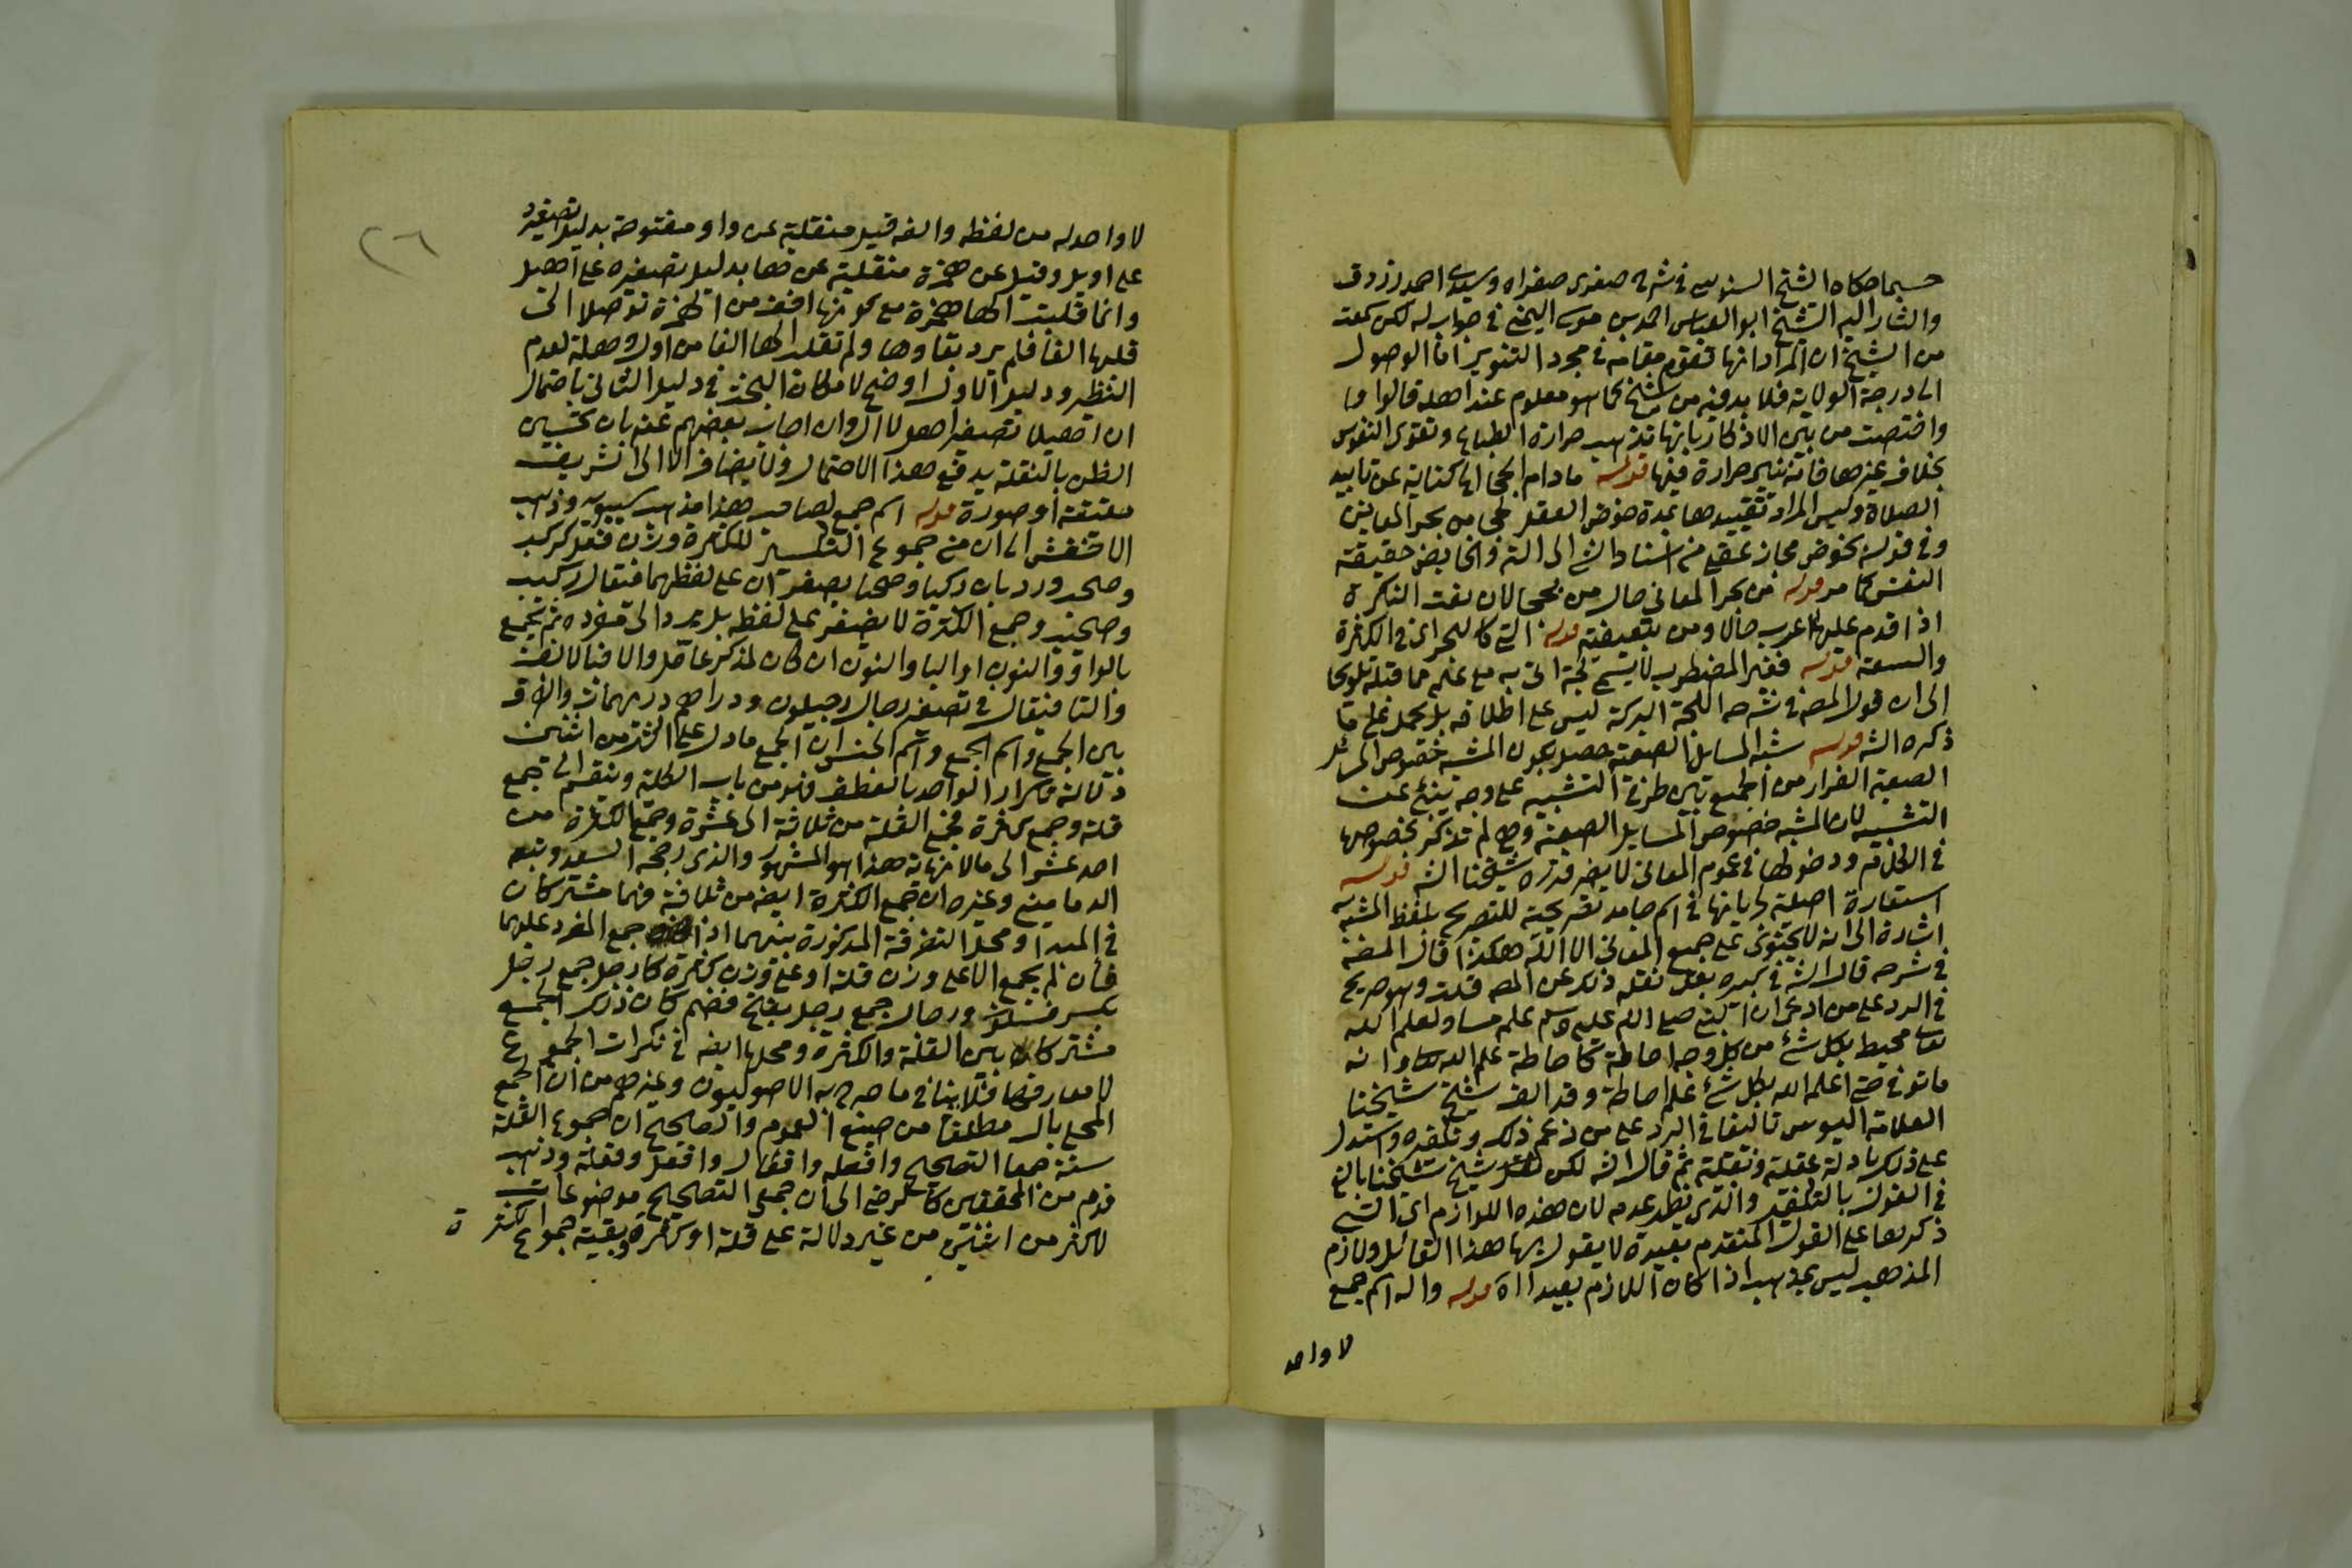 حسبما حكاه الشيخ السنوسي في شرح صغرى صغراه وسيدي احمد زروق
واشار اليه الشيخ ابو العباس احمد بن موسى اليمني في جواب له لكن سمعت
من الشيخ ان المراد انها تقوم مقامه في مجرد التنوير اما الوصول
الى درجة الولاية فلا بد فيه من شيخ كما هو معلوم عند اهله قالوا وما
واختصت من بين الاذكار بانها تذهب حرارة الطباع وتقوى النفوس
بخلاف غيرها فانه يثير حرارة فيها قوله مادام الحجا الخ كناية عن تابيد
الصلاة وليس المراد تقييدها بمدة خوض العقل في بحر المعاني
وفي قوله يخوض مجاز عقلي من اسناد الشي الى الته والخايض حقيقة
النفس كما مر قوله من بحر المعاني حال من لججا لان نعت النكرة
اذا قدم عليها اعرب حالا ومن تبعيضية قوله التي كالبحر اي في الكثرة
والسعة قوله فغير المضطرب لا يسمى لجة اتى به مع علمه مما قبله تلويحا
الى ان قول المص في شرحه اللجة البركة ليس على اطلاقه بل يحمل على ما
ذكره الشه قوله شبه المسايل الصعبة حصل بكون المشبه خصوص المسائل
الصعبة الفرار من الجمع بين طرفي التشبيه على وجه ينبئ عن
التشبيه لان المشبه خصوص المسايل الصعبة وهي لم تذكر بخصوصها
في الكلام ودخولها في عموم المعاني لا يضر قرره شيخنا الشه قوله
استعارة اصلية لجريانها في اسم جامد تصريحية للتصريح بلفظ المشبه به
اشارة الى انه لا يحتوي على جميع المعاني الا الله هكذا قال المص
في شرحه قال الشه في كبيره بعد نقله ذلك عن المص قلت وهو صريح
في الرد على من ادعى ان النبي صلى الله عليه وسلم علمه مساو لعلم الله
تعالى محيط بكل شئ من كل وجه احاطة كاحاطة علم الله تعالى وانه
ما توفي حتى اعلمه الله بكل شئ علم احاطة وقد الف شيخ شيخنا
العلامة اليوسي تاليفا في الرد على من زعم ذلك وتكفيره واستدل
على ذلك بادلة عقلية ونقلية ثم قال الشه لكن شيخ شيخنا بالغ
في القول بالتكفير والذي يظهر عدمه لان هذه اللوازم التي
ذكرها على القول المتقدم بعيدة لا يقول بها هذا القائل ولازم
المذهب ليس بمذهب اذا كان اللازم بعيدا اه قوله واله اسم جمع
لا واحد
٢٦
لا واحد له من لفظه والفه قيل منقلبة عن واو مفتوحة بدليل تصغيره
على اويل وقيل عن همزة منقلبة عن هاء بدليل تصغيره على اهيل
وانما قلبت الهاء همزة مع كونها اخف من الهمزة توصلا الى
قلبها الفا فلم يرد بقاوها ولم تقلب الهاء الفا من اول وهلة لعدم
النظير ودليل الاول اوضح لامكان البحث في دليل الثاني باحتمال
ان اهيلا تصغير اهل لا ال وان اجاب بعضهم عنه بان تحسين
الظن بالنقلة يدفع هذا الاحتمال ولا يضاف الا الى شريف
حقيقة او صورة قوله اسم جمع لصاحب هذا مذهب سيبويه وذهب
الاخفش الى ان من جموع التكسير للكثرة وزن فعل كركب
وصحب ورد بان ركبا وصحبا يصغران على لفظهما فيقال ركيب
وصحيب وجمع الكثرة لا يصغر على لفظه بل يرد الى مفرده ثم يجمع
بالواو والنون او اليا والنون ان كان لمذكر عاقل والا فبالالف
والتا فيقال في تصغير رجال رجيلون ودراهم دريهمات والفرق
بين الجمع واسم الجمع واسم الجنس ان الجمع ما دل على اكثر من اثنين
دلالة تكرار الواحد بالعطف فهو من باب الكلية وينقسم الى جمع
قلة وجمع كثرة فجمع القلة من ثلاثة الى عشرة وجمع الكثرة من
احد عشر الى ما لا نهاية هذا هو المشهور والذي رجحه السعد وتبعه
الدماميني وغيره ان جمع الكثرة ايضا من ثلاثة فهما مشتركان
في المبدا ومحل التفرقة المذكورة بينهما اذا جمع المفرد عليهما
فان لم يجمع الا على وزن قلة او على وزن كثرة كارجل جمع رجل
بكسر فسكون ورجال جمع رجل بفتح فضم كان ذلك الجمع
مشتركا بين القلة والكثرة ومحلها ايضا في نكرات الجموع
لا معارفها فلا ينافي ما صرح به الاصوليون وغيرهم من ان الجمع
المحلى بال مطلقا من صيغ العموم والصحيح ان جموع القلة
ستة جمعا التصحيح وافعلة وافعال وافعل وفعلة وذهب
قوم من المحققين كالرضي الى ان جمعي التصحيح موضوعات
لاكثر من اثنين من غير دلالة على قلة او كثرة وبقية جموع الكثرة